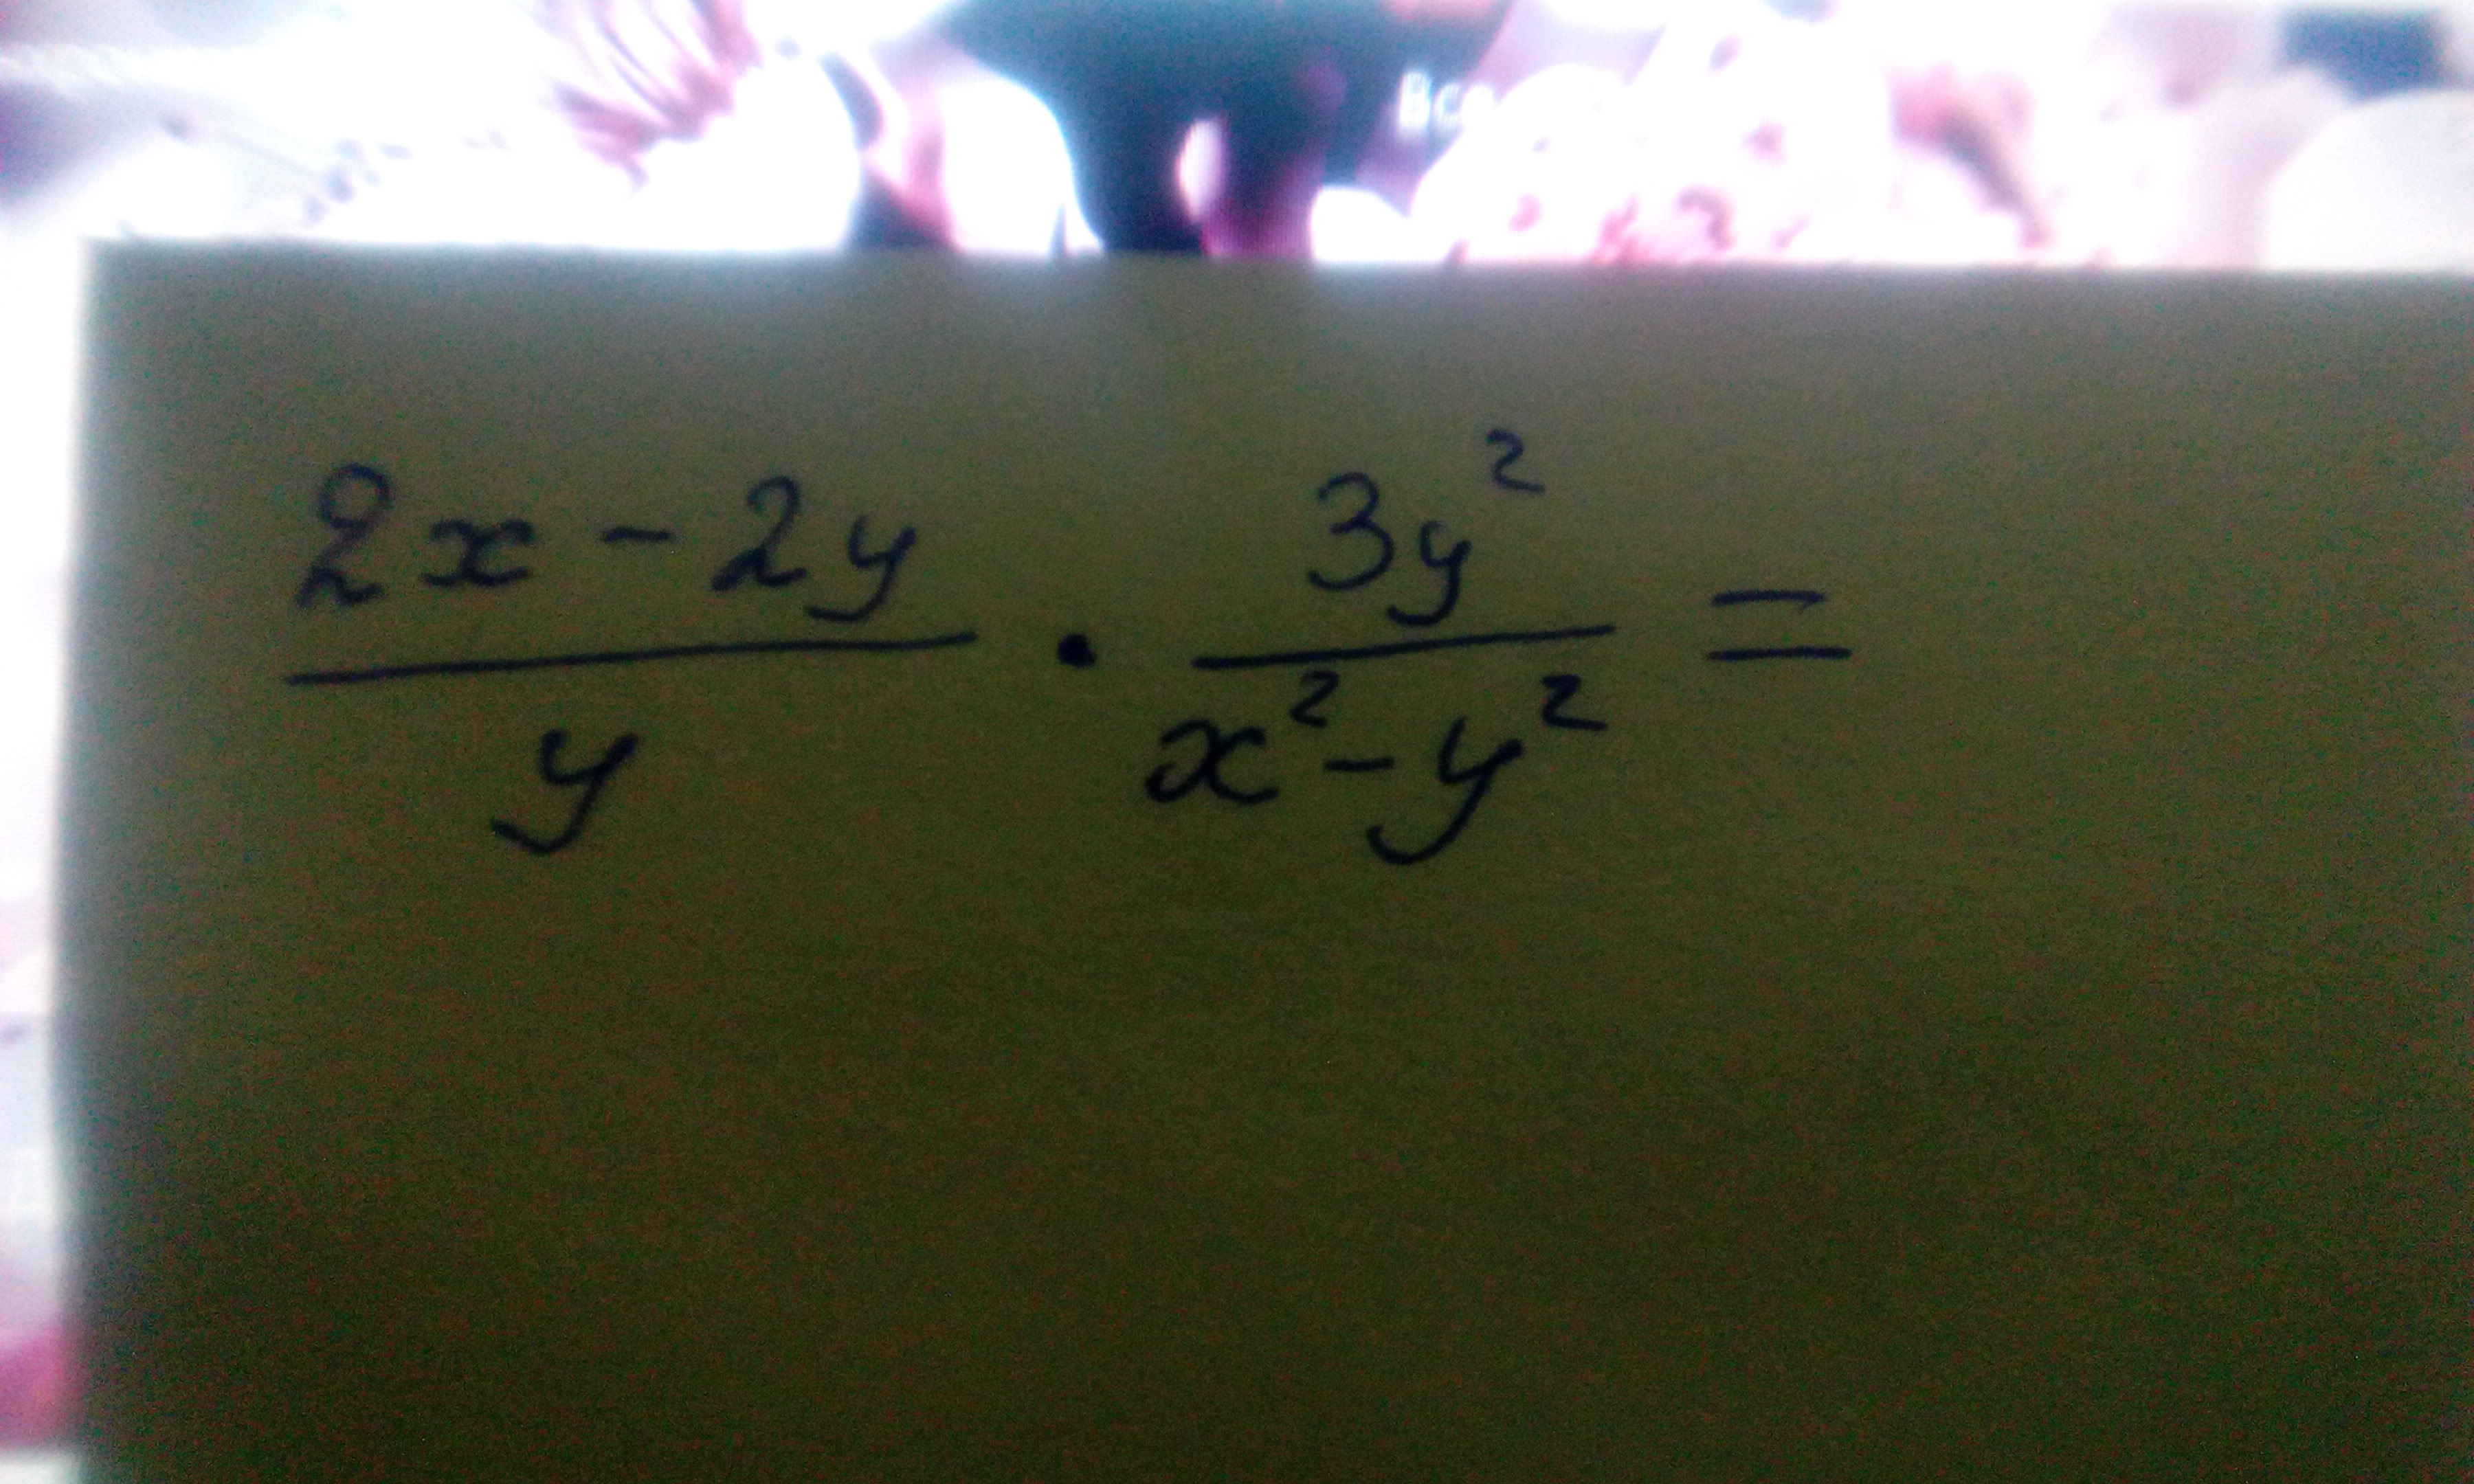 (2x - 2y)/y · 3y²/(x² - y²) =